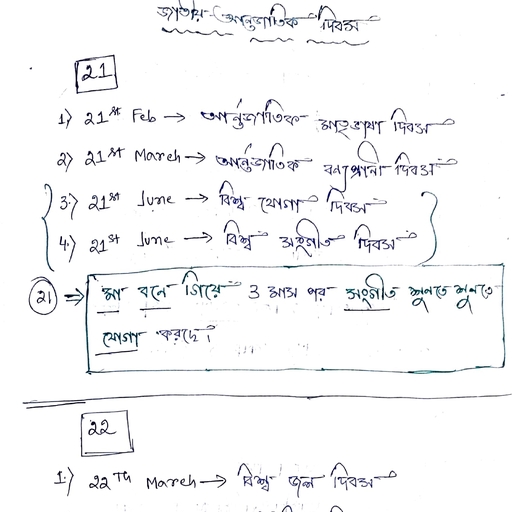 জাতীয়-আন্তর্জাতিক দিবস
21
1) 21st Feb → আন্তর্জাতিক মাতৃভাষা দিবস
2) 21st March → আন্তর্জাতিক বন্যপ্রানী দিবস
3) 21st June → বিশ্ব যোগা দিবস
4) 21st June → বিশ্ব সংগীত দিবস
21 ⇒ মা বনে গিয়ে 3 মাস পর সংগীত শুনতে শুনতে
যোগা করছে।
22
1) 22Th March → বিশ্ব জল দিবস